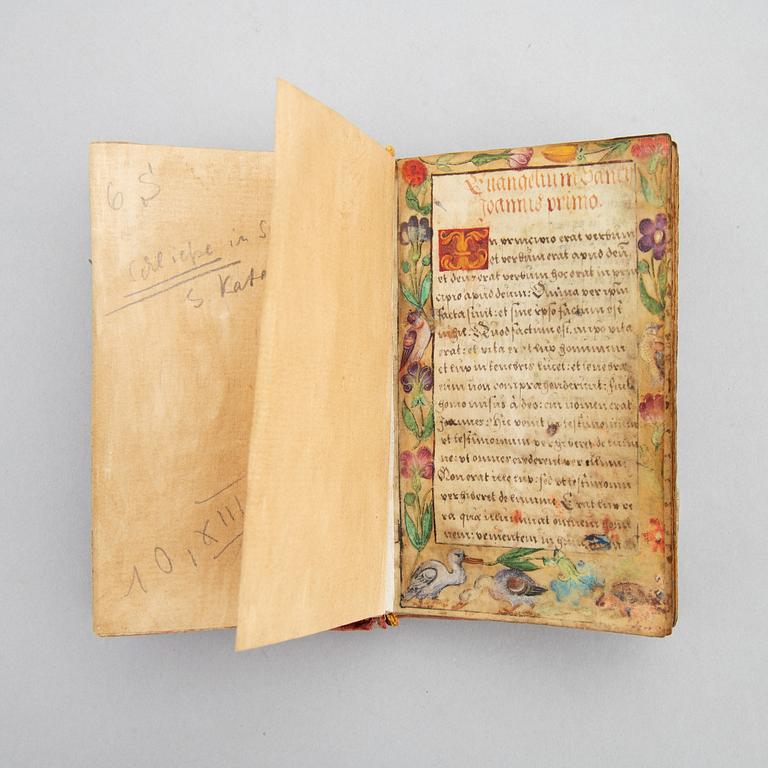 6 S
in S
S Kat
10, XIII
Euangelium Sancti
Joannis primo.
In principio erat verbum
et verbum erat apud deū
et deus erat verbum hoc erat in prin
cipio apud deum: Omnia per ipm̄
facta sunt: et sine ipso factum est
nihil: Quod factum est, in ipo vita
erat: et vita erat lux hominum
et lux in tenebris lucet: et tenebrae
eum non comprehenderunt: fuit
homo missus à deo: cui nomen erat
Joannes: Hic venit in testimonium
vt testimonium perhiberet de lumi
ne: vt omnes crederent per illum:
Non erat ille lux: sed vt testimoniū
perhiberet de lumine: Erat lux ve
ra quae illuminat omnem homi
nem: venientem in